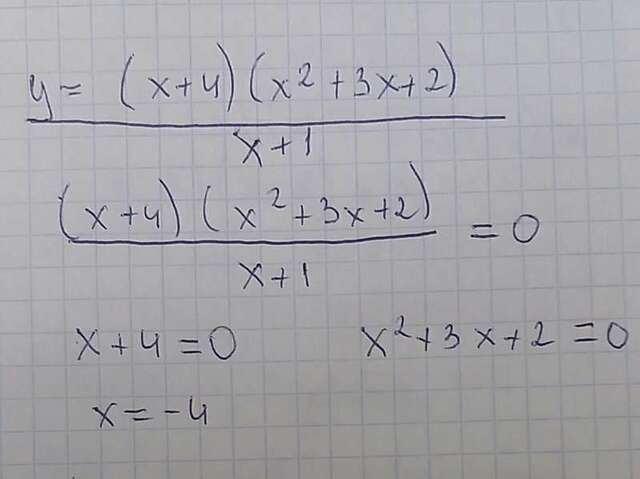 y = (x+4)(x²+3x+2)
x+1
(x+4)(x²+3x+2) = 0
x+1
x+4=0 x²+3x+2=0
x=-4